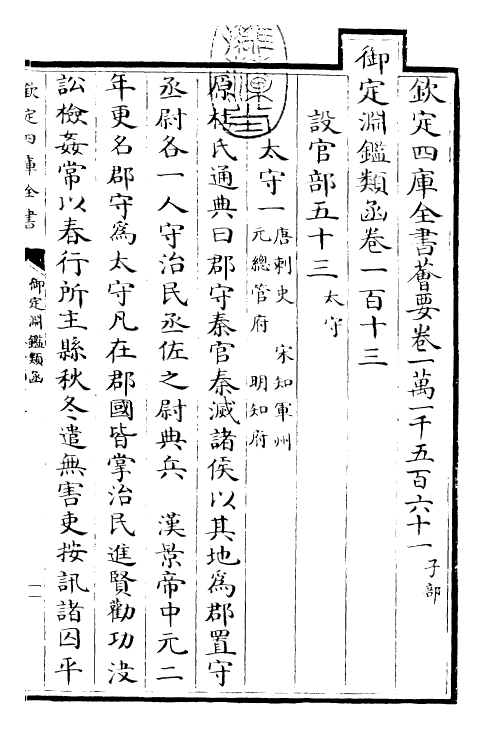 欽定四庫全書薈要卷一萬一千五百六十一 子部
御定淵鑑類函卷一百十三
設官部五十三 太守
太守一 唐刺史 宋知軍州
元總管府 明知府
原杜氏通典曰郡守秦官秦滅諸侯以其地為郡置守
丞尉各一人守治民丞佐之尉典兵 漢景帝中元二
年更名郡守為太守凡在郡國皆掌治民進賢勸功決
訟檢姦常以春行所主縣秋冬遣無害吏按訊諸囚平
欽定四庫全書
御定淵鑑類函
一